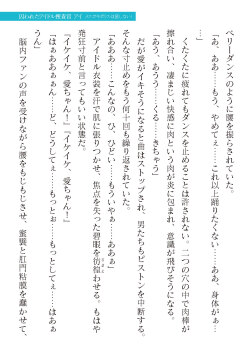 囚われたアイドル捜査官 アイ
ベリーダンスのように腰を振らされていた。
「あ、ああ……もう、やめてぇ……これ以上踊りたくない……ああ、身体がぁ……」
くたくたに疲れてもダンスを止めることは許されない。二つの穴で肉棒が
擦れ合い、凄まじい快感に肉という肉が炎に包まれ、意識が飛びそうになる。
「あう、あうう……くる……きちゃう」
だが愛がイキそうになると曲はストップされ、男たちもピストンを中断する。
そんな寸止めをもう何十回も繰り返されていた。
「あぁ……こんなの、ひ、ひどい……もういやぁ……あああ」
アイドル衣装を汗で肌に張りつかせ、焦点を失った碧眼を彷徨わせる。もはや
発狂寸前と言ってもいい状態だ。
『イケイケ、愛ちゃん！』『イケイケ、愛ちゃん！』
「はぁああぁん……ど、どうしてぇ……もっとぉ……もっとしてぇ……はぁぁ
うん」
脳内ファンの声を受けながら腰をもじもじさせ、蜜襞と肛門粘膜を蠢かせて、